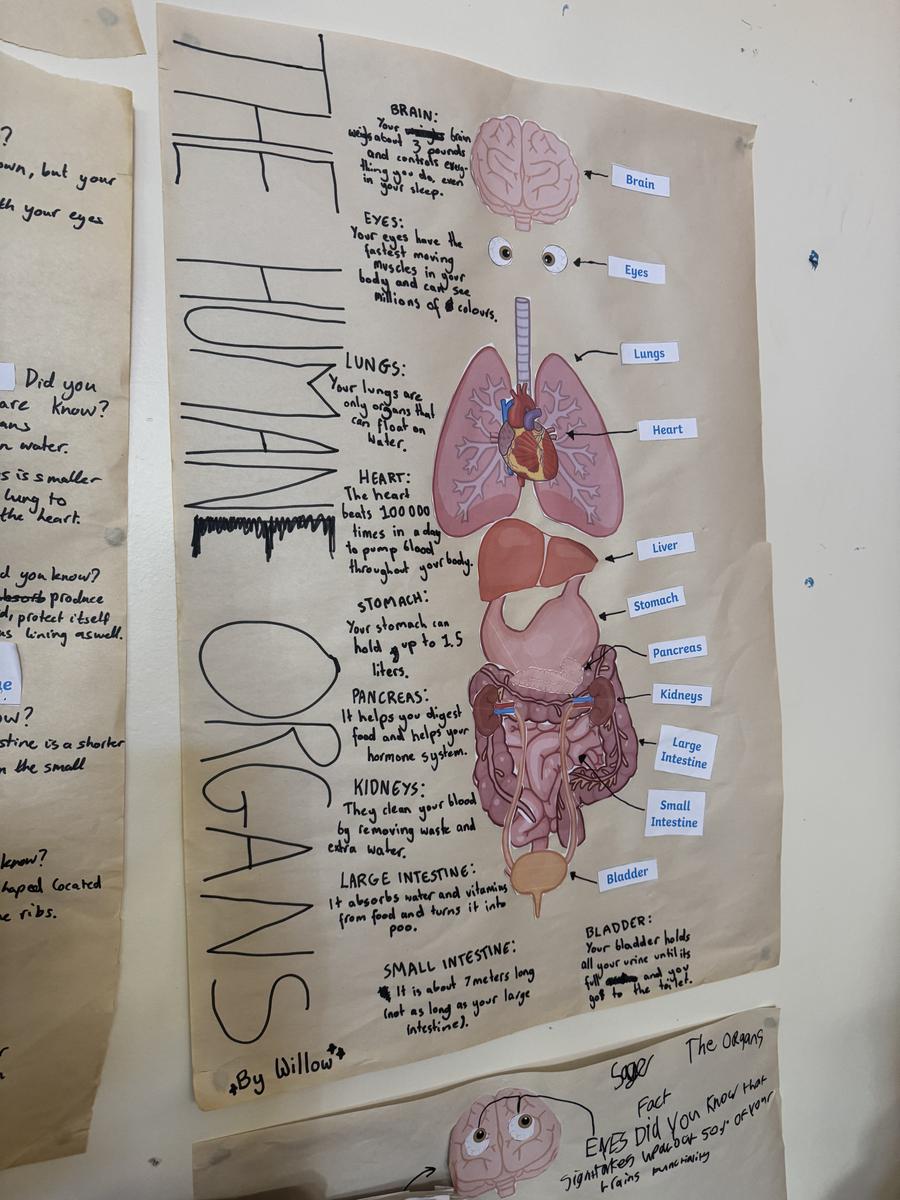 THE HUMAN ORGANS
BRAIN:
Your brain
weighs about 3 pounds
and controls every-
thing you do, even
in your sleep.
EYES:
Your eyes have the
fastest moving
muscles in your
body and can see
millions of colours.
LUNGS:
Your lungs are
only organs that
can float on
water.
HEART:
The heart
beats 100000
times in a day
to pump blood
throughout your body.
STOMACH:
Your stomach can
hold up to 1.5
liters.
PANCREAS:
It helps you digest
food and helps your
hormone system.
KIDNEYS:
They clean your blood
by removing waste and
extra water.
LARGE INTESTINE:
It absorbs water and vitamins
from food and turns it into
poo.
SMALL INTESTINE:
It is about 7 meters long
(not as long as your large
intestine).
BLADDER:
Your bladder holds
all your urine until its
full and you
go to the toilet.
By Willow
Brain
Eyes
Lungs
Heart
Liver
Stomach
Pancreas
Kidneys
Large
Intestine
Small
Intestine
Bladder
?
own, but your
th your eyes
Did you
are know?
ans
n water.
s is smaller
lung to
the heart.
d you know?
absorb produce
d, protect itself
as lining aswell.
ue
ow?
stine is a shorter
n the small
know?
haped located
e ribs.
The Organs
Fact
EYES Did You Know that
50% of your
brains